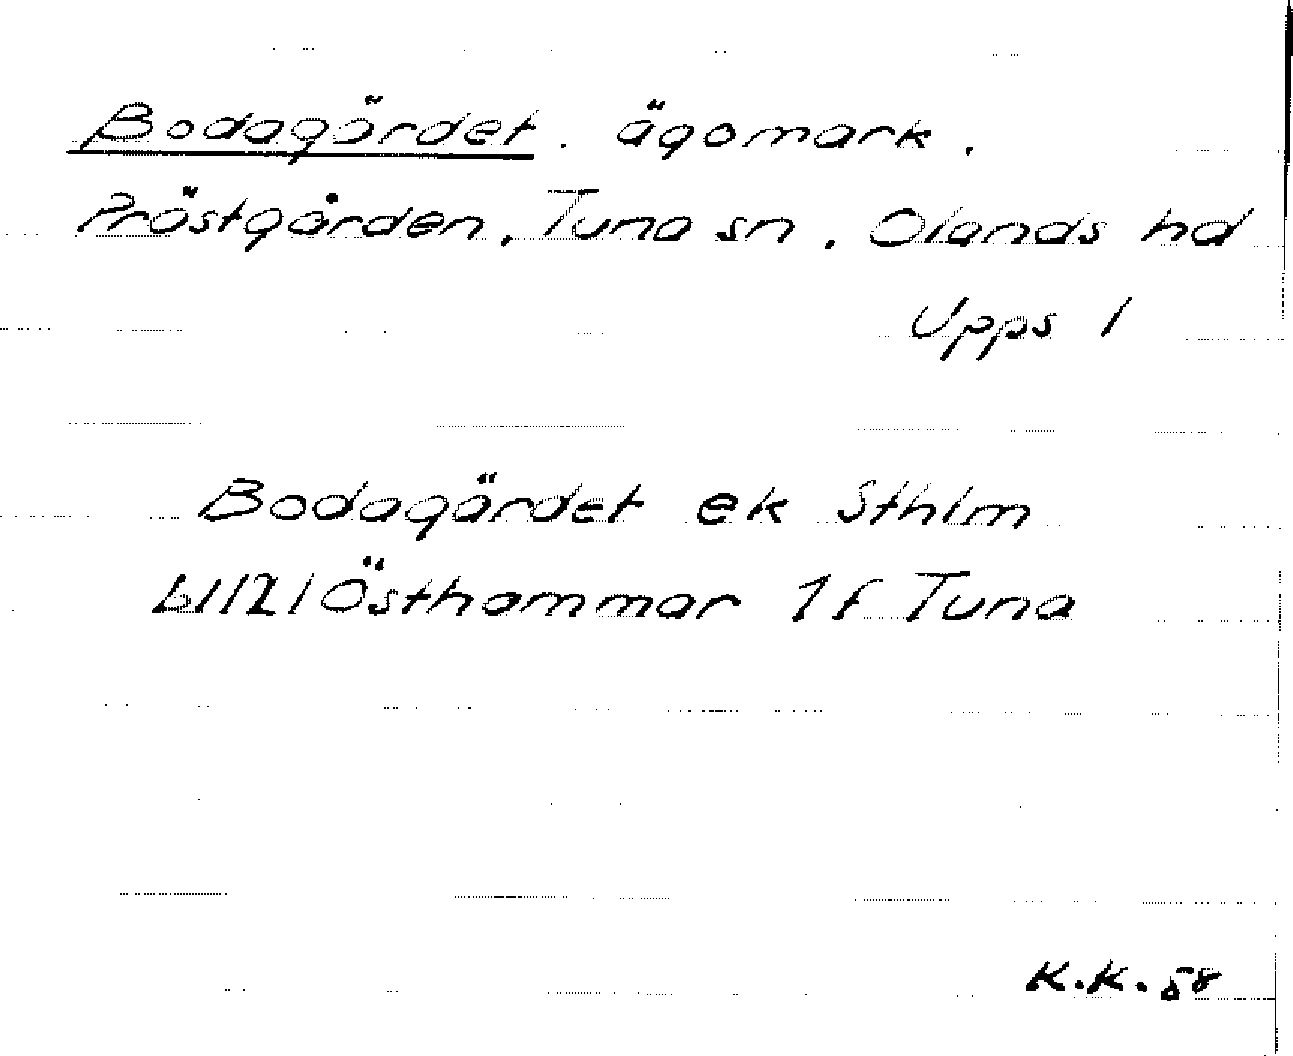 Bodagärdet. ägomark.
Prästgården, Tuna sn. Olands hd
Upps l
Bodagärdet ek Sthlm
Östhammar 1 f Tuna
K.K. 58